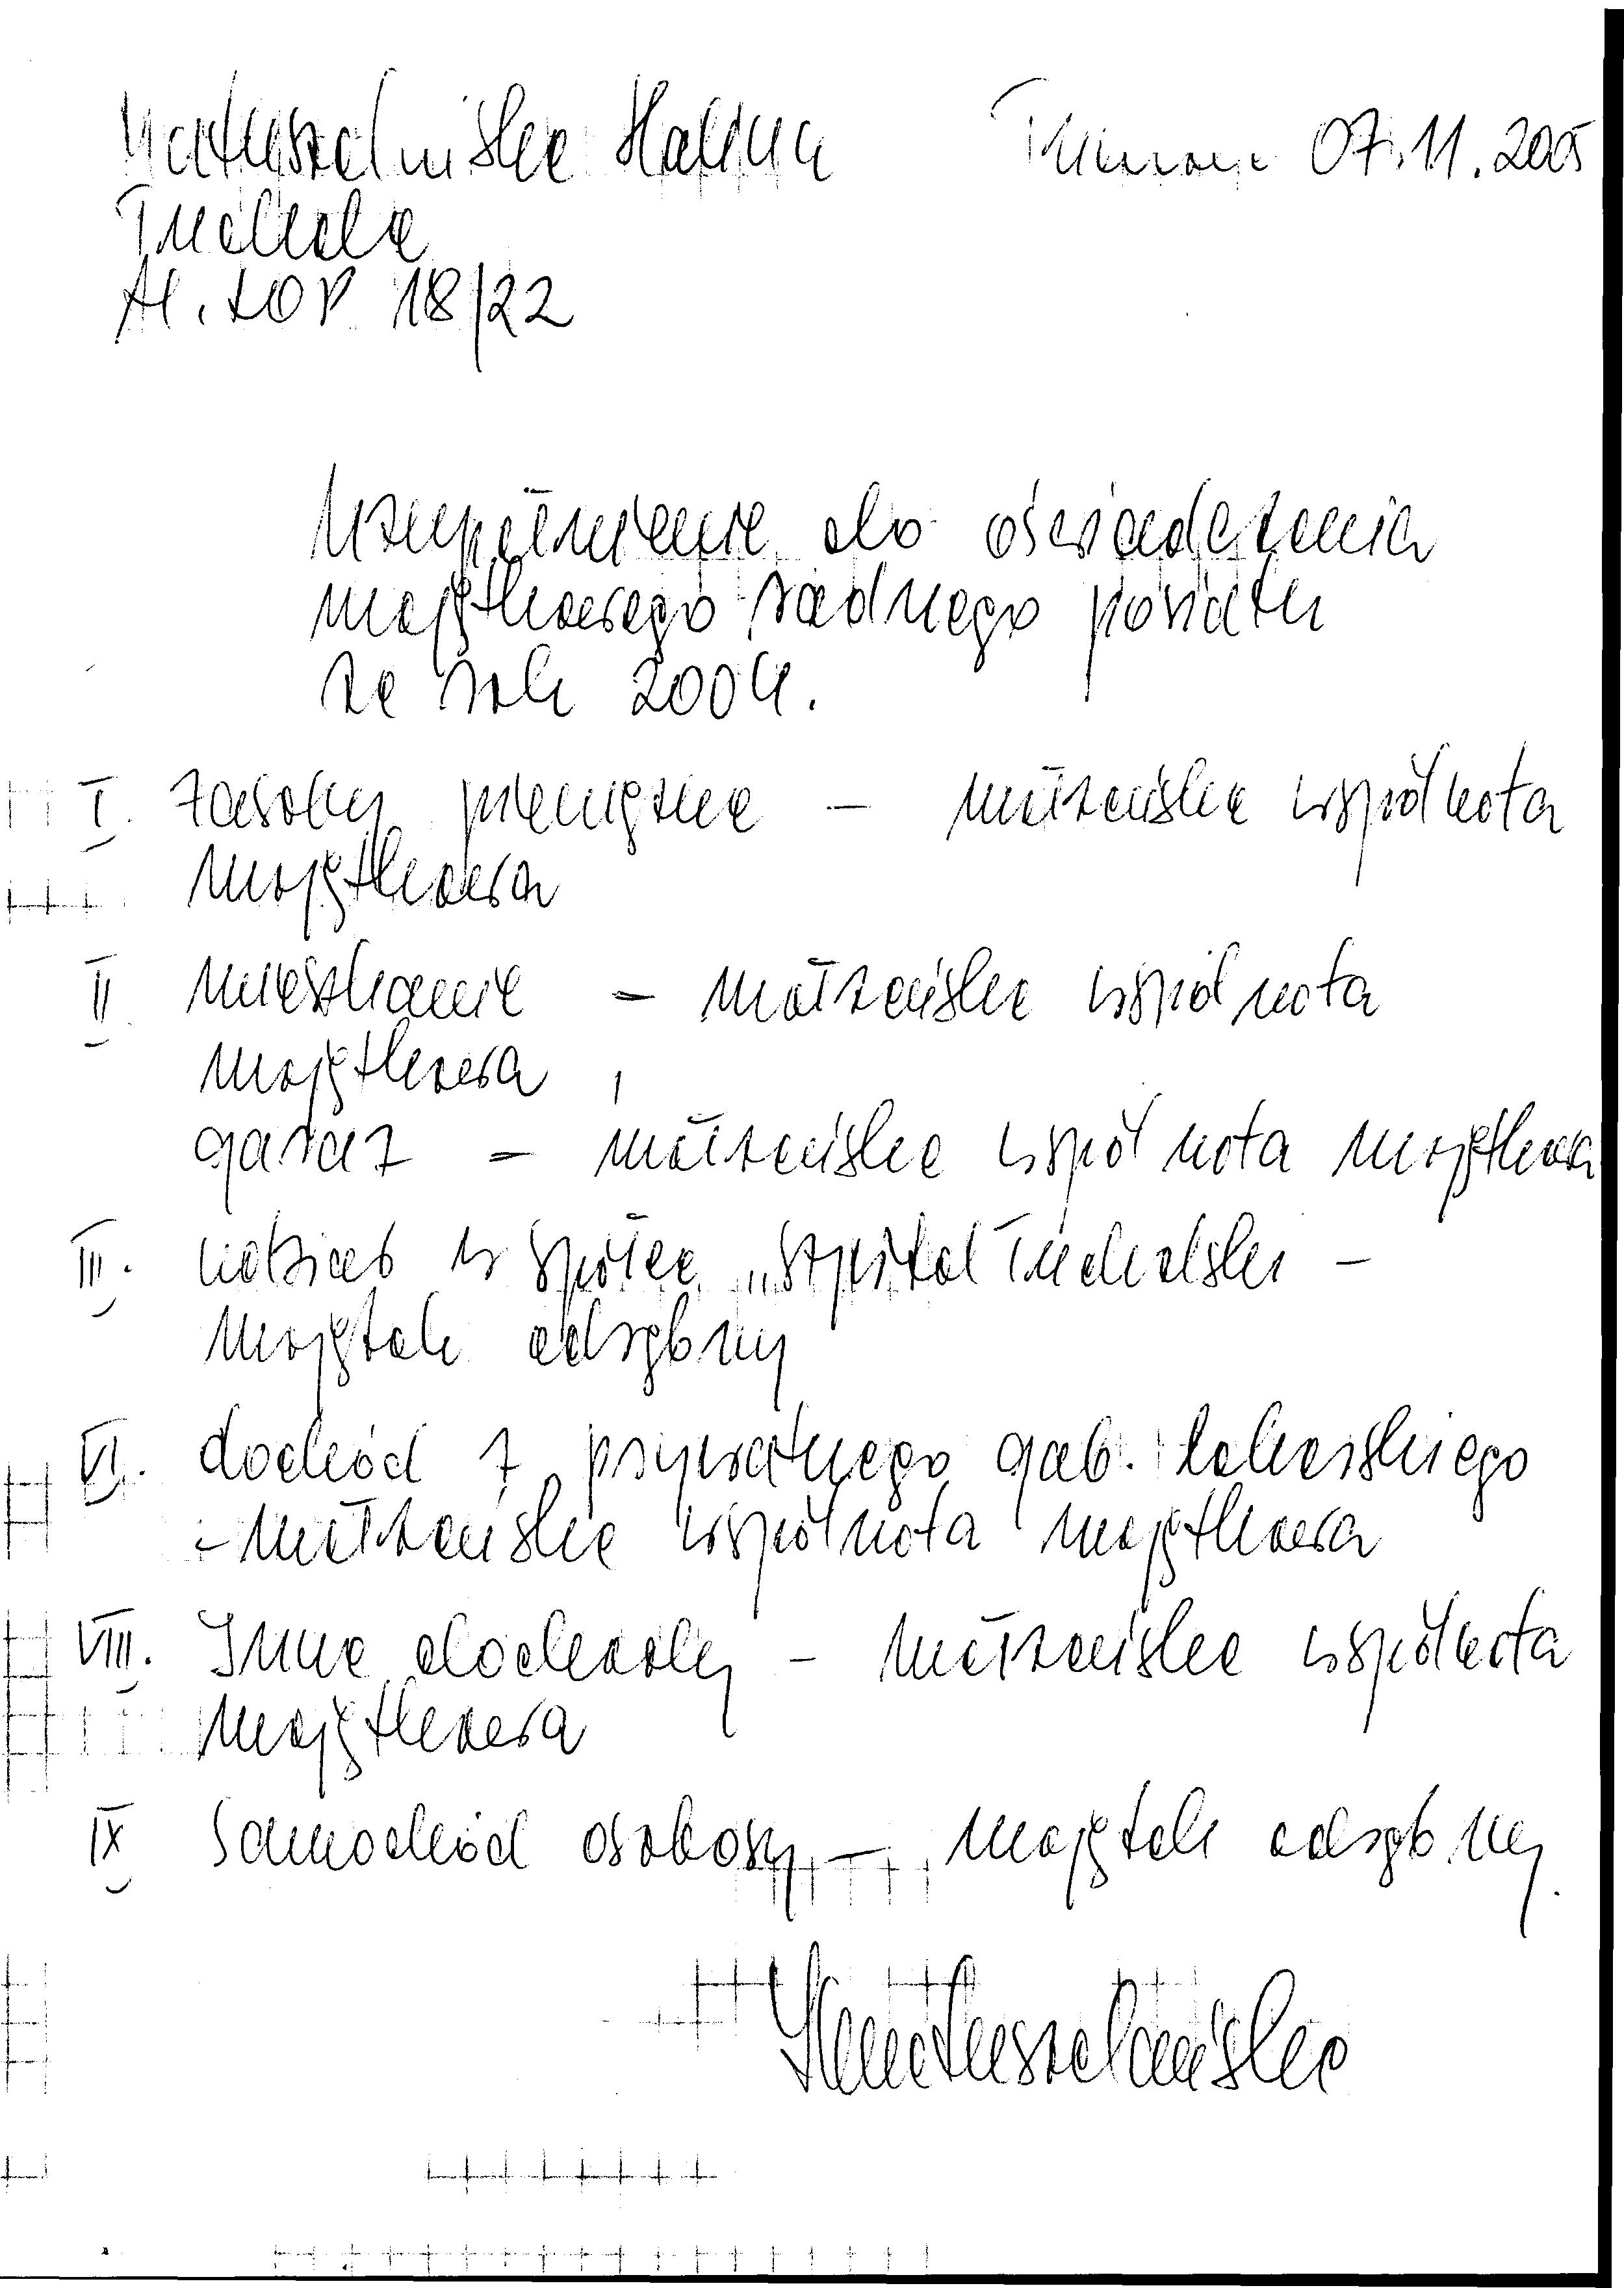 Matuszelańska Halina 07.11.2005
Tuchola
Al. LOP 18/22
Uzupełnienie do oświadczenia
majątkowego radnego powiatu
za rok 2004.
I. Zasoby pieniężne — małżeńska wspólnota
majątkowa
II mieszkanie – małżeńska wspólnota
majątkowa,
garaż – małżeńska wspólnota majątkowa
III. udział w spółce „Szpital Tucholski –
majątek odrębny
VI. dochód z prywatnego gab. lekarskiego
- małżeńska wspólnota majątkowa
VIII. Inne dochody – małżeńska wspólnota
majątkowa
IX Samochód osobowy – majątek odrębny.